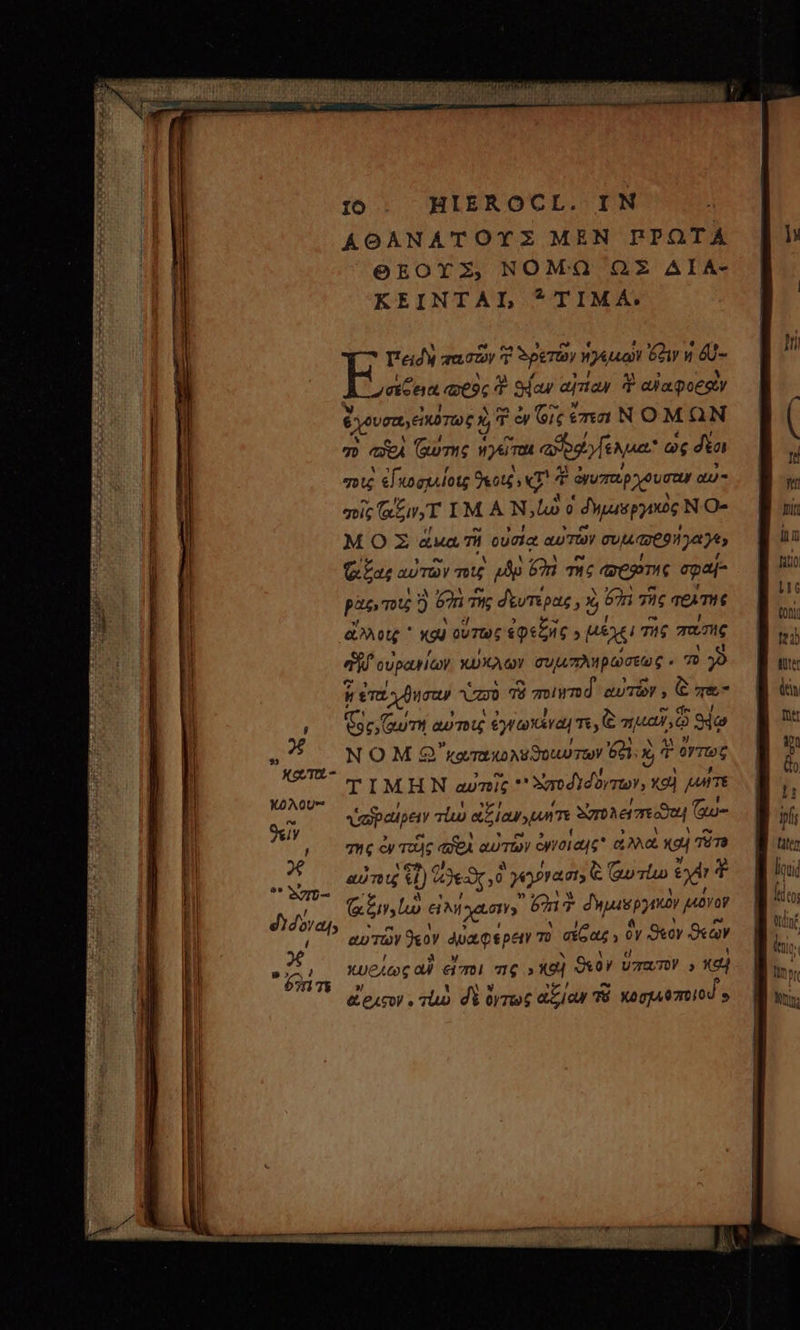 10 HIEROCL. IN
ΑΘΑΝΑΤΟΥΣ ΜΕΝ ΠΡΩΤΑ
ΘΕΟΥΣ, ΝΟΜΩ ΩΣ ΔΙΑ-
ΚΕΙΝΤΑΙ, * ΤΙΜΑ.
ΕΠειδὴ πασῶν τῶν ἀρετῶν ἡγεμών ἐστιν ἡ εὐ-
σέβεια πρὸς τὴν θείαν αἰτίαν τὴν ἀναφορὰν
ἔχουσα, εἰκότως καὶ τῶν ἐν τοῖς ἔπεσι ΝΟΜΩΝ
τὸ περὶ ταύτης ἡγεῖται παράγγελμα· ὡς δέοι
τοὺς ἐγκοσμίους θεοὺς, κατὰ τὴν ἐνυπάρχουσαν αὐ-
τοῖς τάξιν, ΤΙΜΑΝ, ἣν ὁ δημιουργικὸς ΝΟ-
ΜΟΣ ἅμα τῇ οὐσίᾳ αὐτῶν συμπροήγαγε,
τάξας αὐτῶν τοὺς μὲν ἐπὶ τῆς πρώτης σφαί-
ρας, τοὺς δὲ ἐπὶ τῆς δευτέρας, καὶ ἐπὶ τῆς τρίτης
ἄλλους· καὶ οὕτως ἐφεξῆς, μέχρι τῆς πάσης
τῶν οὐρανίων κύκλων συμπληρώσεως. τὸ γὸ
ᾗ ἐτάχθησαν ὑπὸ τοῦ ποιητοῦ αὐτῶν, καὶ πα-
τρὸς, ταύτῃ αὐτοὺς ἐγνωκέναι τε, καὶ τιμᾶν, τῷ θείῳ
ΝΟΜΩ κατακολουθούντων ἐστὶ. καὶ τὴν ὄντως
ΤΙΜΗΝ αὐτοῖς ** ἀποδιδόντων, καὶ μήτε
ὑπεραίρειν τὴν ἀξίαν, μήτε ἀπολείπεσθαι ταύ-
της ἐν ταῖς περὶ αὐτῶν ἐννοίαις· ἀλλὰ καὶ τοῦτο
αὐτοὺς εἶναι τίθεσθαι, ὃ γεγόνασι, καὶ ταύτην ἔχειν τὴν
τάξιν, ἣν εἰλήχασιν, ἐπὶ τὸν δημιουργικὸν μόνον
αὐτῶν θεὸν ἀναφέρειν τὸ σέβας, ὃν θεὸν θεῶν
κυρίως ἂν εἴποι τις, καὶ θεὸν ὕπατον, καὶ
ἄριστον. τὴν δὲ ὄντως ἀξίαν τοῦ κοσμοποιοῦ,
κατα-
κολου-
θεῖν
** ἀπο-
διδόναι,
ἐπί τε